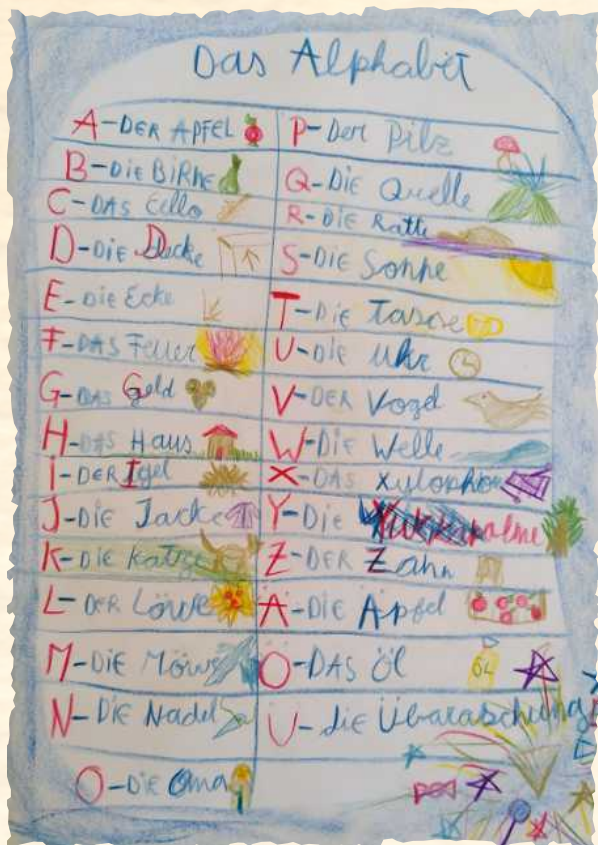 Das Alphabet
A-DER APFEL
B-DiE BiRNe
C-DAS Cello
D-DiE Decke
E-DiE Ecke
F-DAS Feuer
G-DAS Geld
H-DAS Haus
I-DER Igel
J-DiE Jacke
K-DiE Katze
L-DER Löwe
M-DiE Möwe
N-DiE Nadel
O-DiE Oma
P-Der Pilz
Q-DiE Quelle
R-DiE Ratte
S-DiE Sonne
T-DiE Tasse
U-DiE Uhr
V-DER Vogel
W-DiE Welle
X-DAS Xylophon
Y-DiE Yukkapalme
Z-DER Zahn
Ä-DiE Äpfel
Ö-DAS Öl
ÖL
Ü-die Übaraschung